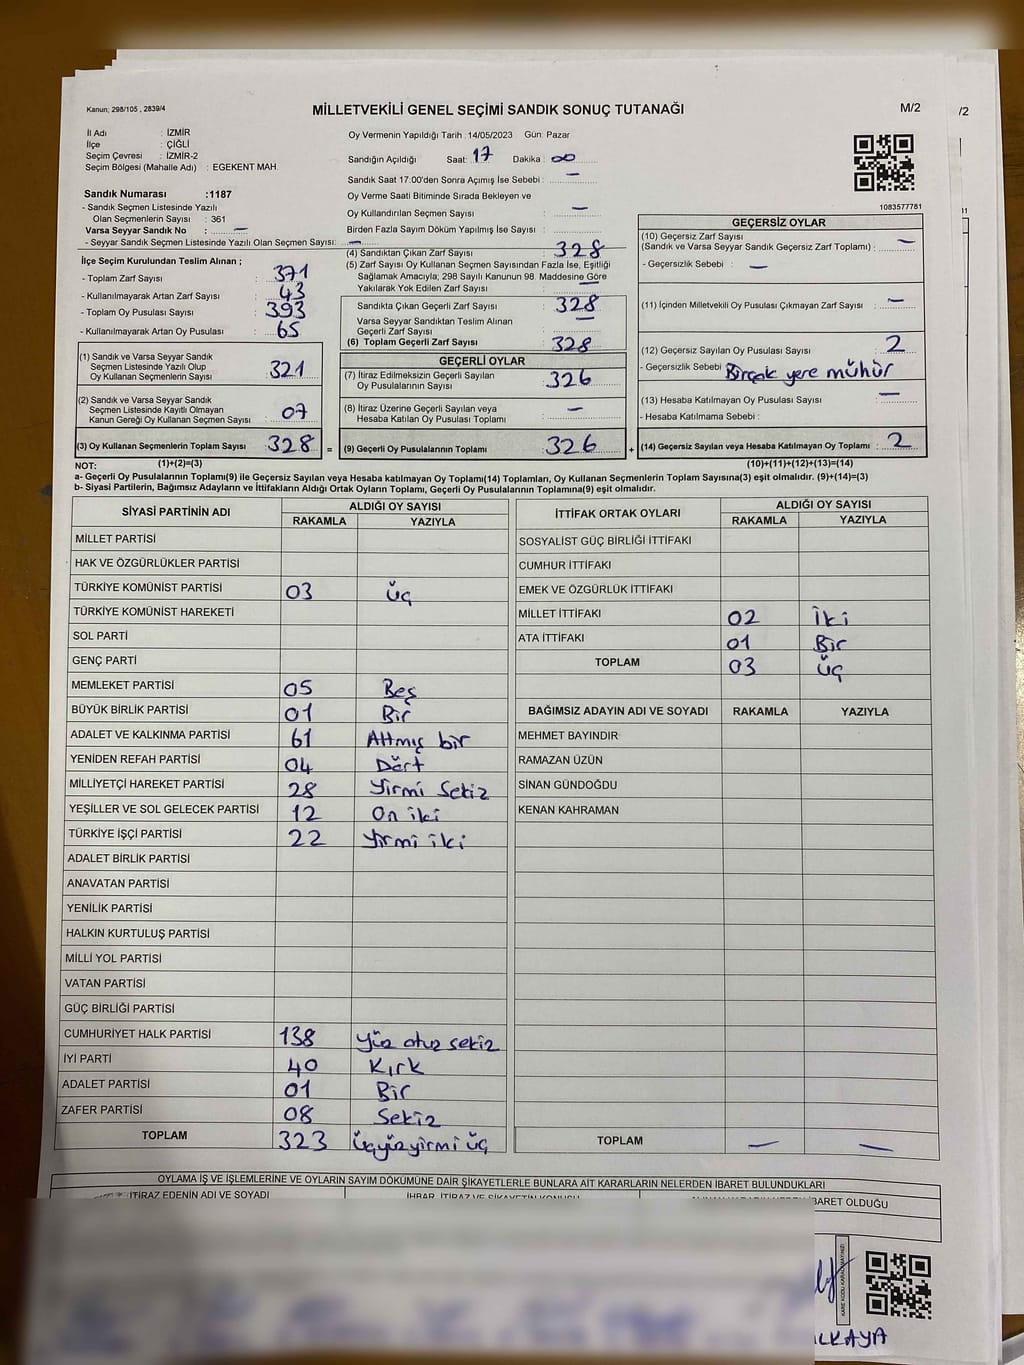 Kanun; 298/105 , 2839/4
MİLLETVEKİLİ GENEL SEÇİMİ SANDIK SONUÇ TUTANAĞI
M/2
/2
İl Adı : İZMİR
İlçe : ÇİĞLİ
Seçim Çevresi : İZMİR-2
Seçim Bölgesi (Mahalle Adı) : EGEKENT MAH.
Sandık Numarası :1187
- Sandık Seçmen Listesinde Yazılı
Olan Seçmenlerin Sayısı : 361
Varsa Seyyar Sandık No : —
- Seyyar Sandık Seçmen Listesinde Yazılı Olan Seçmen Sayısı: —
Oy Vermenin Yapıldığı Tarih : 14/05/2023 Gün: Pazar
Sandığın Açıldığı Saat: 17 Dakika : 00
Sandık Saat 17.00'den Sonra Açımış İse Sebebi : —
Oy Verme Saati Bitiminde Sırada Bekleyen ve
Oy Kullandırılan Seçmen Sayısı : —
Birden Fazla Sayım Döküm Yapılmış İse Sayısı :
1083577781
İlçe Seçim Kurulundan Teslim Alınan ;
- Toplam Zarf Sayısı : 371
- Kullanılmayarak Artan Zarf Sayısı : 43
- Toplam Oy Pusulası Sayısı : 393
- Kullanılmayarak Artan Oy Pusulası : 65
(1) Sandık ve Varsa Seyyar Sandık
Seçmen Listesinde Yazılı Olup
Oy Kullanan Seçmenlerin Sayısı : 321
(2) Sandık ve Varsa Seyyar Sandık
Seçmen Listesinde Kayıtlı Olmayan
Kanun Gereği Oy Kullanan Seçmen Sayısı : 07
(3) Oy Kullanan Seçmenlerin Toplam Sayısı : 328 =
(4) Sandıktan Çıkan Zarf Sayısı : 328
(5) Zarf Sayısı Oy Kullanan Seçmen Sayısından Fazla İse, Eşitliği
Sağlamak Amacıyla; 298 Sayılı Kanunun 98. Maddesine Göre
Yakılarak Yok Edilen Zarf Sayısı : —
Sandıkta Çıkan Geçerli Zarf Sayısı : 328
Varsa Seyyar Sandıktan Teslim Alınan —
Geçerli Zarf Sayısı :
(6) Toplam Geçerli Zarf Sayısı : 328
GEÇERLİ OYLAR
(7) İtiraz Edilmeksizin Geçerli Sayılan
Oy Pusulalarının Sayısı : 326
(8) İtiraz Üzerine Geçerli Sayılan veya
Hesaba Katılan Oy Pusulası Toplamı : —
(9) Geçerli Oy Pusulalarının Toplamı : 326 +
GEÇERSİZ OYLAR
(10) Geçersiz Zarf Sayısı
(Sandık ve Varsa Seyyar Sandık Geçersiz Zarf Toplamı) : —
- Geçersizlik Sebebi : —
(11) İçinden Milletvekili Oy Pusulası Çıkmayan Zarf Sayısı : —
(12) Geçersiz Sayılan Oy Pusulası Sayısı : 2
- Geçersizlik Sebebi Birçok yere mühür
(13) Hesaba Katılmayan Oy Pusulası Sayısı : —
- Hesaba Katılmama Sebebi :
(14) Geçersiz Sayılan veya Hesaba Katılmayan Oy Toplamı : 2
NOT: (1)+(2)=(3) (10)+(11)+(12)+(13)=(14)
a- Geçerli Oy Pusulalarının Toplamı(9) ile Geçersiz Sayılan veya Hesaba katılmayan Oy Toplamı(14) Toplamları, Oy Kullanan Seçmenlerin Toplam Sayısına(3) eşit olmalıdır. (9)+(14)=(3)
b- Siyasi Partilerin, Bağımsız Adayların ve İttifakların Aldığı Ortak Oyların Toplamı, Geçerli Oy Pusulalarının Toplamına(9) eşit olmalıdır.
SİYASİ PARTİNİN ADI ALDIĞI OY SAYISI
RAKAMLA YAZIYLA
MİLLET PARTİSİ
HAK VE ÖZGÜRLÜKLER PARTİSİ
TÜRKİYE KOMÜNİST PARTİSİ 03 üç
TÜRKİYE KOMÜNİST HAREKETİ
SOL PARTİ
GENÇ PARTİ
MEMLEKET PARTİSİ 05 Beş
BÜYÜK BİRLİK PARTİSİ 01 Bir
ADALET VE KALKINMA PARTİSİ 61 Altmış bir
YENİDEN REFAH PARTİSİ 04 Dört
MİLLİYETÇİ HAREKET PARTİSİ 28 Yirmi Sekiz
YEŞİLLER VE SOL GELECEK PARTİSİ 12 On iki
TÜRKİYE İŞÇİ PARTİSİ 22 Yirmi iki
ADALET BİRLİK PARTİSİ
ANAVATAN PARTİSİ
YENİLİK PARTİSİ
HALKIN KURTULUŞ PARTİSİ
MİLLİ YOL PARTİSİ
VATAN PARTİSİ
GÜÇ BİRLİĞİ PARTİSİ
CUMHURİYET HALK PARTİSİ 138 Yüz otuz sekiz
İYİ PARTİ 40 Kırk
ADALET PARTİSİ 01 Bir
ZAFER PARTİSİ 08 Sekiz
TOPLAM 323 üçyüzyirmi üç
İTTİFAK ORTAK OYLARI ALDIĞI OY SAYISI
RAKAMLA YAZIYLA
SOSYALİST GÜÇ BİRLİĞİ İTTİFAKI
CUMHUR İTTİFAKI
EMEK VE ÖZGÜRLÜK İTTİFAKI
MİLLET İTTİFAKI 02 İki
ATA İTTİFAKI 01 Bir
TOPLAM 03 üç
BAĞIMSIZ ADAYIN ADI VE SOYADI RAKAMLA YAZIYLA
MEHMET BAYINDIR
RAMAZAN ÜZÜN
SİNAN GÜNDOĞDU
KENAN KAHRAMAN
TOPLAM — —
OYLAMA İŞ VE İŞLEMLERİNE VE OYLARIN SAYIM DÖKÜMÜNE DAİR ŞİKAYETLERLE BUNLARA AİT KARARLARIN NELERDEN İBARET BULUNDUKLARI
İTİRAZ EDENİN ADI VE SOYADI İHBAR, İTİRAZ VE ŞİKAYETİN KONUSU İBARET OLDUĞU